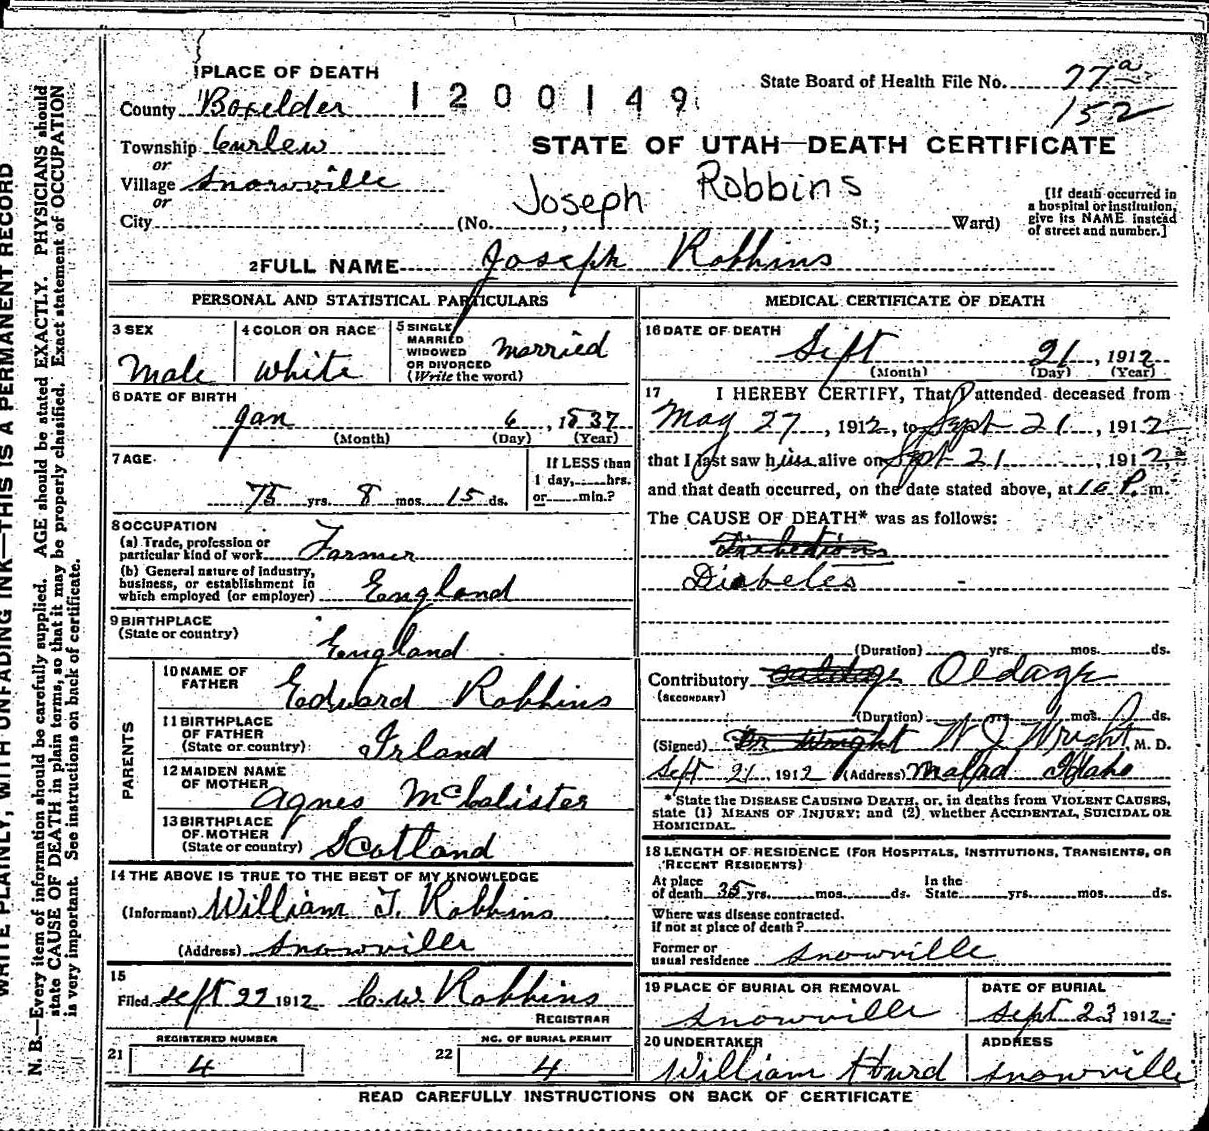 1 PLACE OF DEATH
County Boxelder
1200149
State Board of Health File No. 77 a
152
Township Curlew
or
Village Snowville
or
City
STATE OF UTAH—DEATH CERTIFICATE
Joseph Robbins
(No. , St.; Ward)
[If death occurred in a hospital or institution, give its NAME instead of street and number.]
2 FULL NAME Joseph Robbins
PERSONAL AND STATISTICAL PARTICULARS
3 SEX
Male
4 COLOR OR RACE
White
5 SINGLE
MARRIED
WIDOWED
OR DIVORCED
(Write the word)
Married
6 DATE OF BIRTH
Jan 6, 1837
(Month) (Day) (Year)
7 AGE
75 yrs. 8 mos. 15 ds.
If LESS than
1 day, hrs.
or min.?
8 OCCUPATION
(a) Trade, profession or
particular kind of work Farmer
(b) General nature of industry,
business, or establishment in
which employed (or employer) England
9 BIRTHPLACE
(State or country)
England
PARENTS
10 NAME OF
FATHER Edward Robbins
11 BIRTHPLACE
OF FATHER
(State or country) Irland
12 MAIDEN NAME
OF MOTHER Agnes McCalister
13 BIRTHPLACE
OF MOTHER
(State or country) Scotland
14 THE ABOVE IS TRUE TO THE BEST OF MY KNOWLEDGE
(Informant) William T. Robbins
(Address) Snowville
15
Filed Sept 22 1912 C. W. Robbins
REGISTRAR
REGISTERED NUMBER
21 4
NO. OF BURIAL PERMIT
22 4
MEDICAL CERTIFICATE OF DEATH
16 DATE OF DEATH
Sept 21, 1912
(Month) (Day) (Year)
17 I HEREBY CERTIFY, That I attended deceased from
May 27, 1912, to Sept 21, 1912
that I last saw him alive on Sept 21, 1912,
and that death occurred, on the date stated above, at 10 P. m.
The CAUSE OF DEATH* was as follows:
Diabetes
(Duration) yrs. mos. ds.
Contributory Oldage
(SECONDARY)
(Duration) yrs. mos. ds.
(Signed) Dr Wright W J Wright, M. D.
Sept 21 1912 (Address) Malad Idaho
*State the DISEASE CAUSING DEATH, or, in deaths from VIOLENT CAUSES,
state (1) MEANS OF INJURY; and (2) whether ACCIDENTAL, SUICIDAL OR
HOMICIDAL.
18 LENGTH OF RESIDENCE (FOR HOSPITALS, INSTITUTIONS, TRANSIENTS, OR
RECENT RESIDENTS)
At place In the
of death 35 yrs. mos. ds. State yrs. mos. ds.
Where was disease contracted.
if not at place of death?
Former or
usual residence Snowville
19 PLACE OF BURIAL OR REMOVAL
Snowville
DATE OF BURIAL
Sept 23 1912
20 UNDERTAKER
William Hurd
ADDRESS
Snowville
READ CAREFULLY INSTRUCTIONS ON BACK OF CERTIFICATE
WRITE PLAINLY, WITH UNFADING INK—THIS IS A PERMANENT RECORD
N. B.—Every item of information should be carefully supplied. AGE should be stated EXACTLY. PHYSICIANS should
state CAUSE OF DEATH in plain terms, so that it may be properly classified. Exact statement of OCCUPATION
is very important. See instructions on back of certificate.